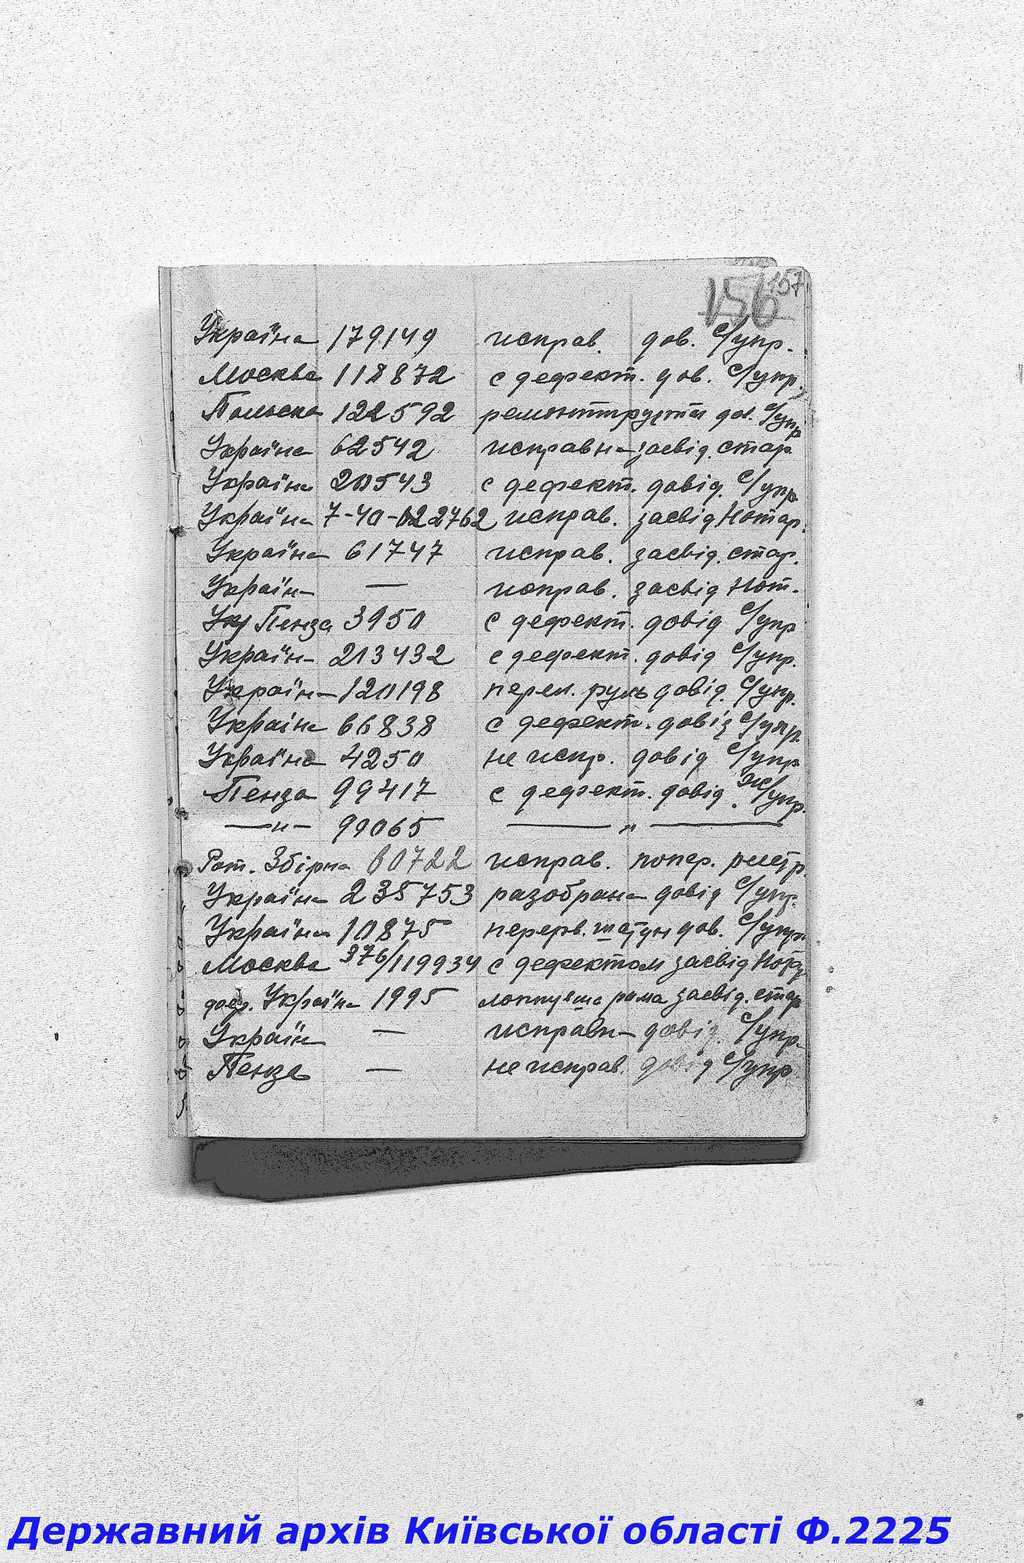 156 157
Україна 179149 исправ. дов. С/упр.
Москва 118872 с дефект. дов. С/упр.
Польска 122592 дов. С/упр
Україна 62542 исправна засвід. стар.
Україна 20543 с дефект. довід. С/упр
Україна 7-40-022762 исправ. засвід Нотар.
Україна 61747 исправ. засвід. стар.
Україн — исправ. засвід Нот.
Укр Пенза 3950 с дефект. довід С/упр
Україн 213432 с дефект. довід С/упр.
Україн 120198 руль довід. С/упр.
Україна 66838 с дефект. довід С/упр.
Україна 4250 не испр. довід С/упр
Пенза 99417 с дефект. довід. С/упр.
—"— 99065 — " —
Збірна 60722 исправ. попер. реєстр
Україна 235753 разобрана довід С/упр.
Україна 10875 шатун дов. С/упр.
Москва 376/119934 с дефектом засвід
Україна 1995 лопнувша рама засвід. стар
Україн — исправн довід. С/упр.
Пенза — не исправ. довід С/упр
Державний архів Київської області Ф.2225